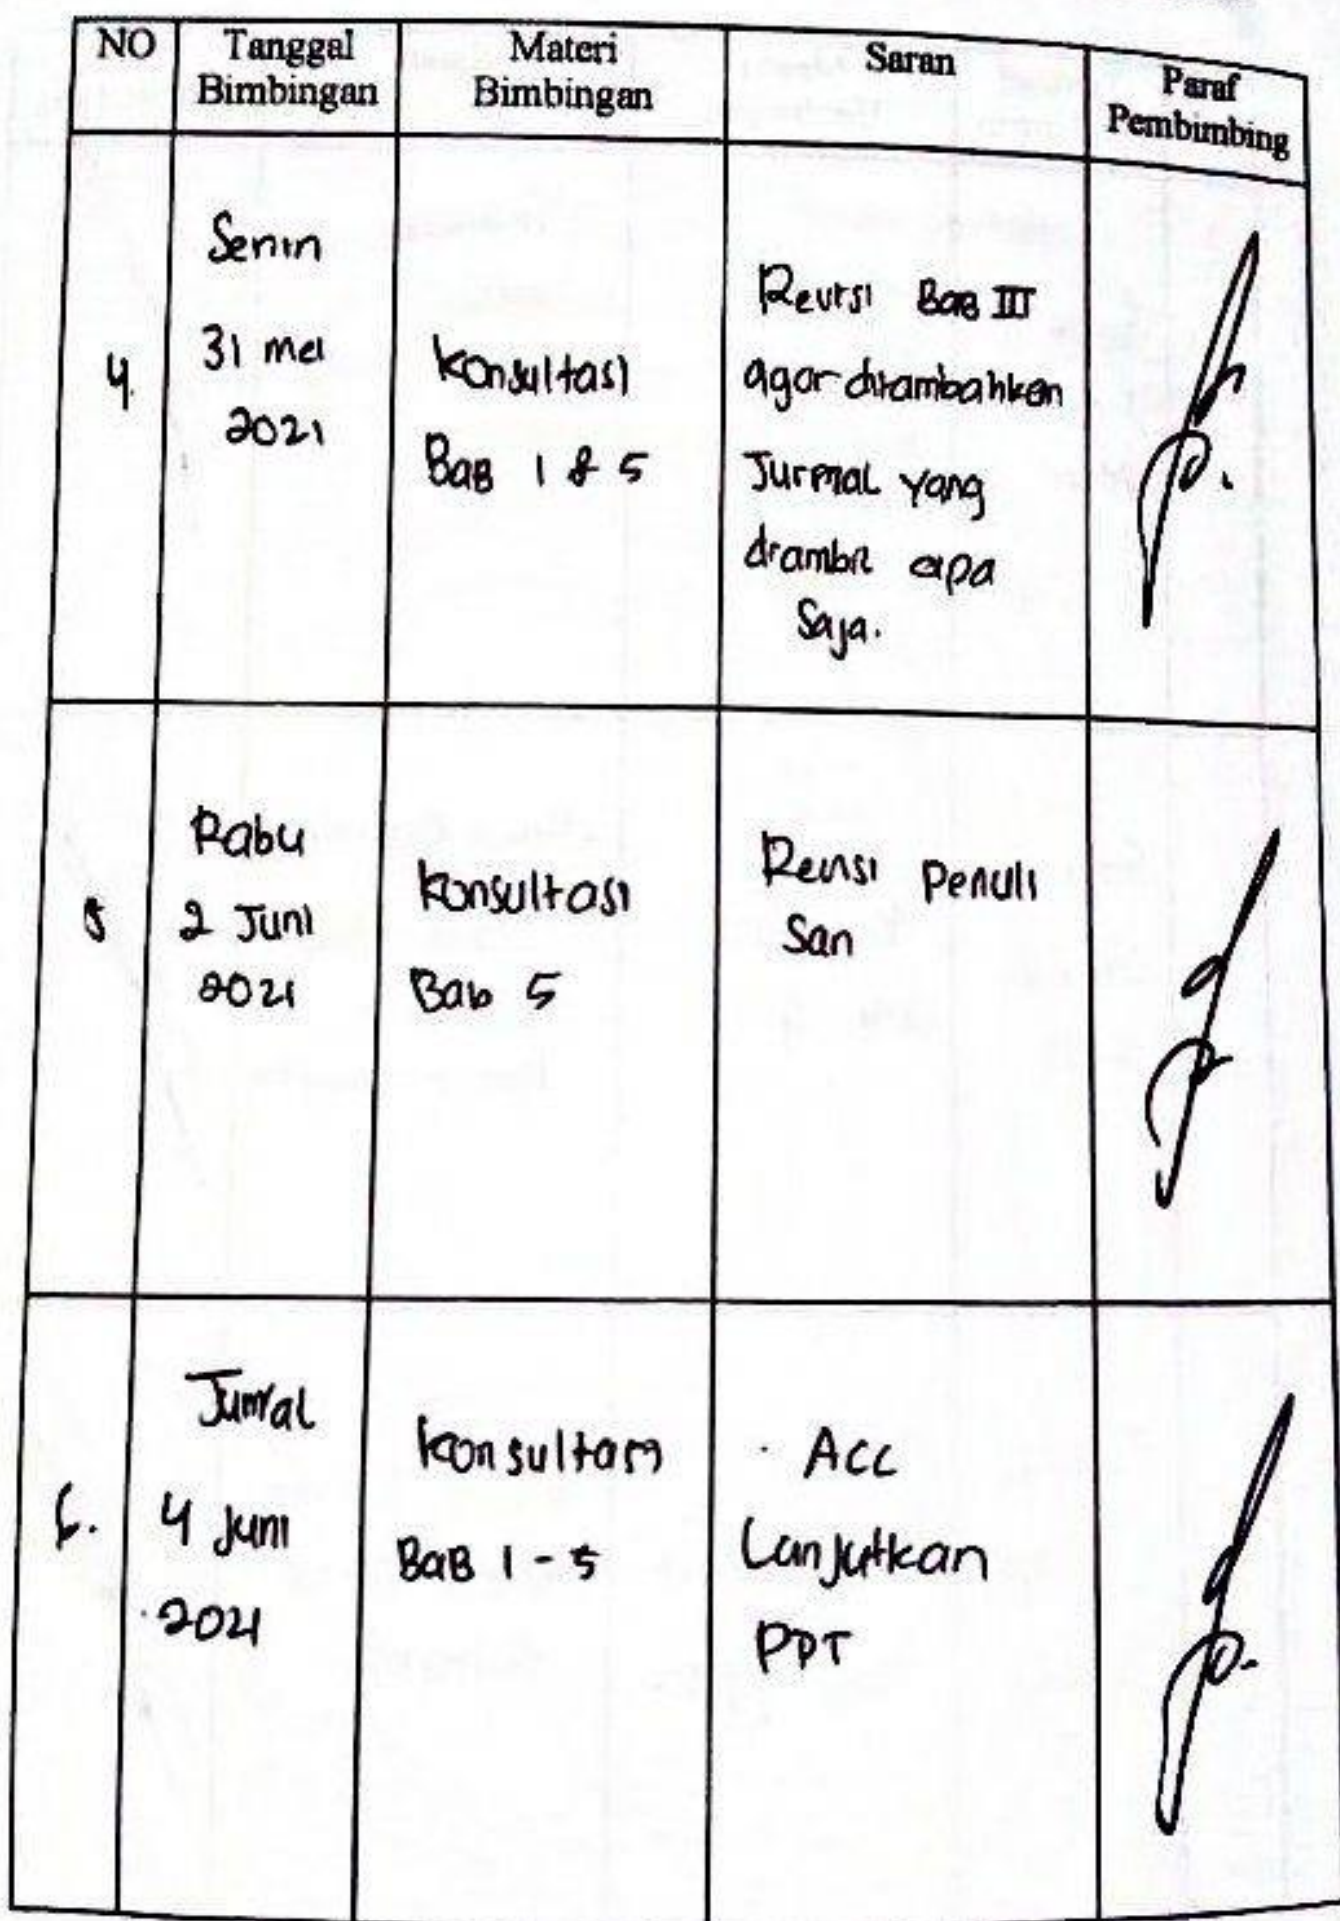 NO
Tanggal
Bimbingan
Materi
Bimbingan
Saran
Paraf
Pembimbing
4.
Senin
31 mei
2021
Konsultasi
Bab 1 & 5
Revisi Bab III
agar ditambahkan
Jurnal yang
diambil apa
Saja.
5
Rabu
2 Juni
2021
Konsultasi
Bab 5
Revisi Penuli
San
6.
Jum'at
4 Juni
2021
Konsultasi
Bab 1 - 5
Acc
Lanjutkan
PPT